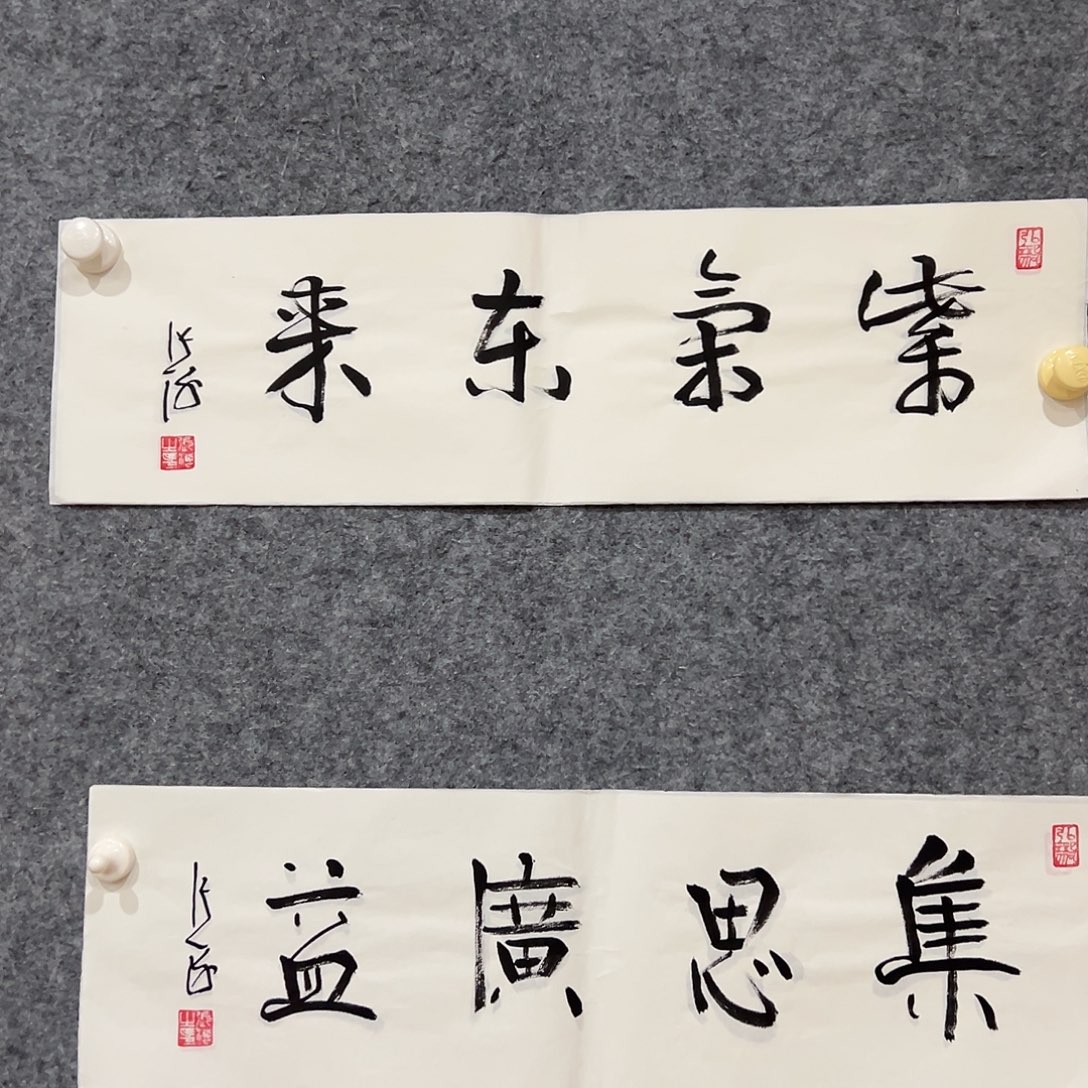 紫氣东来
集思廣益